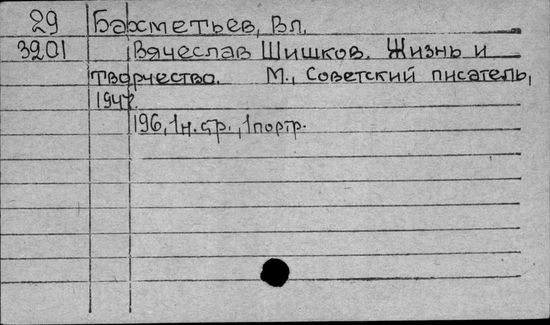 29 Бахметьев, Вл.
3201 Вячеслав Шишков. Жизнь и
творчество. М., Советский писатель,
1947.
196, 1 н. стр., 1 портр.